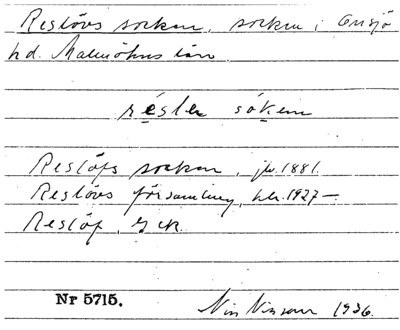 Reslövs socken, socken i Onsjö
hd. Malmöhus län
réslev sókem
Reslöfs socken, jb. 1881.
Reslövs församling, 1927—
Reslöf, GCK.
Nr 5715.
Nils Nilsson 1936.